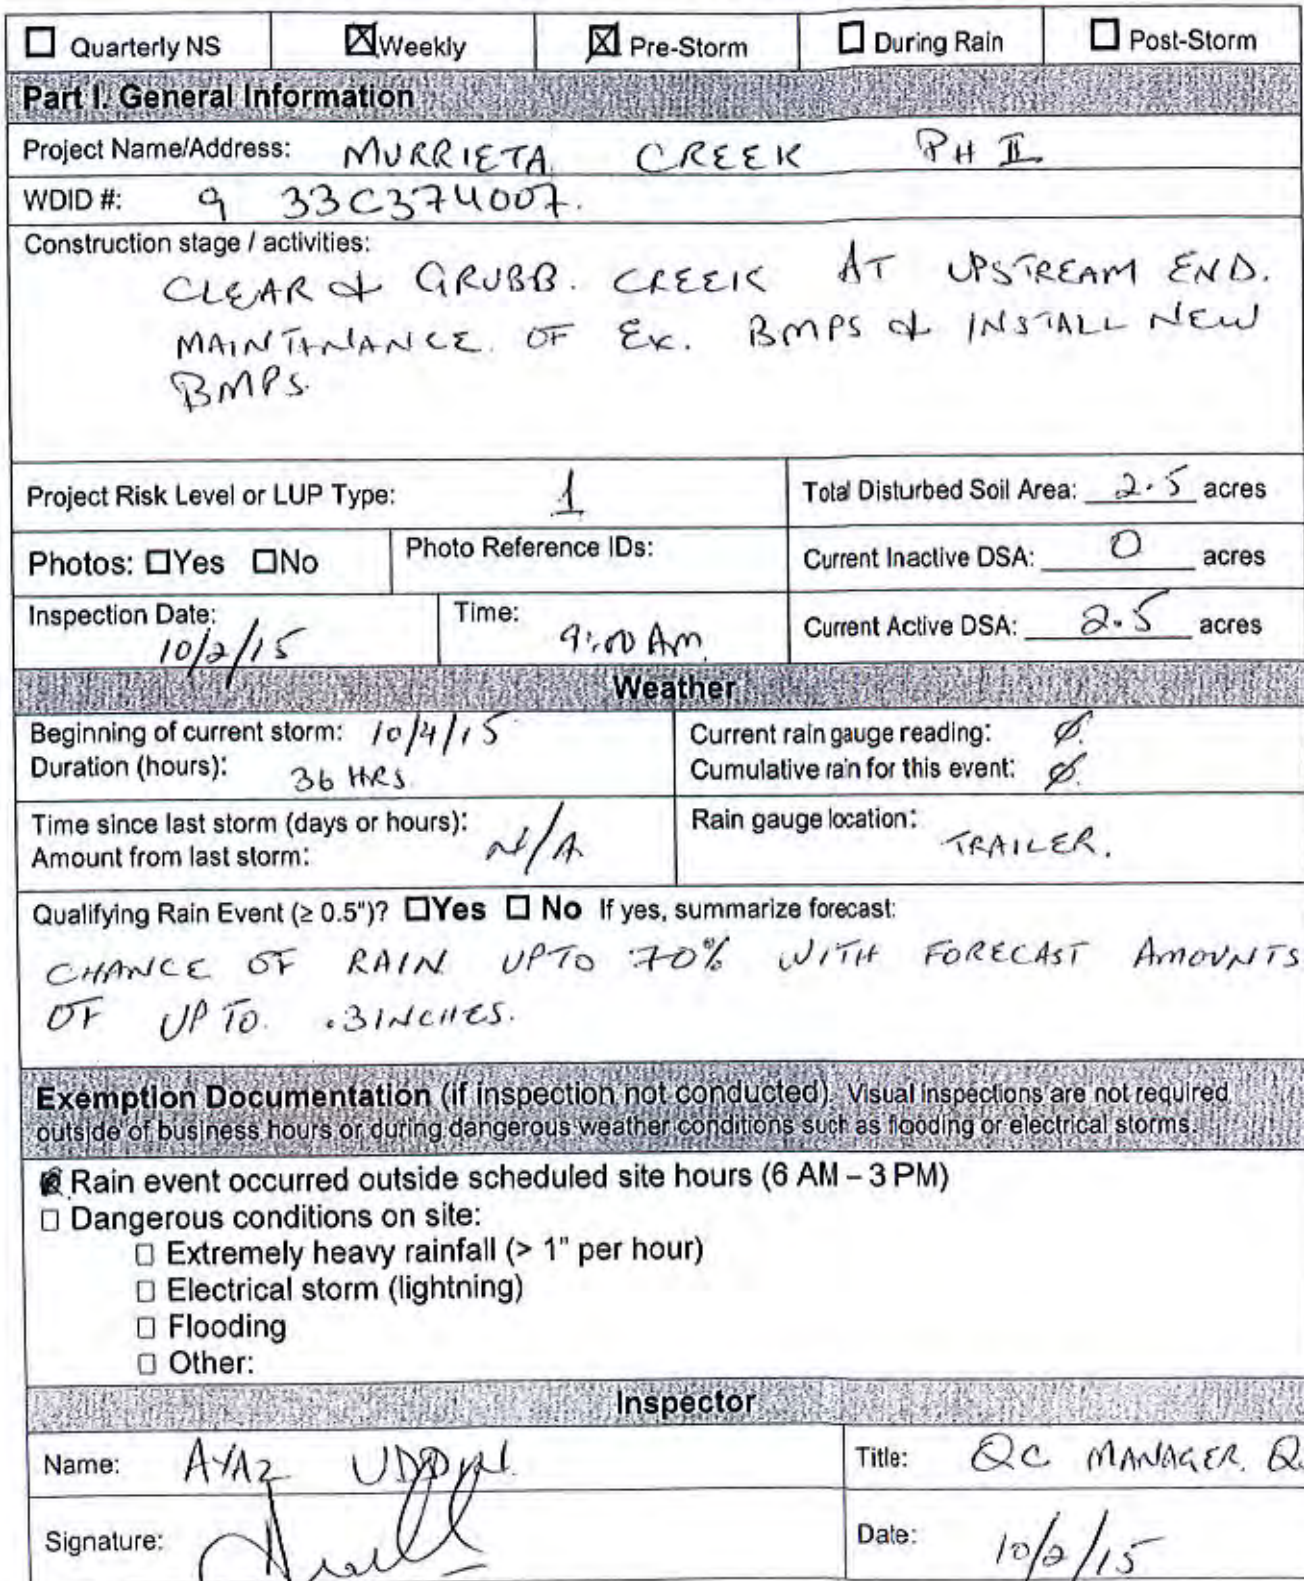 ☐ Quarterly NS ☒ Weekly ☒ Pre-Storm ☐ During Rain ☐ Post-Storm
Part I. General Information
Project Name/Address: MURRIETA CREEK PH II
WDID #: 9 33C374007.
Construction stage / activities:
CLEAR & GRUBB. CREEK AT UPSTREAM END.
MAINTANANCE. OF EX. BMPS & INSTALL NEW
BMPS.
Project Risk Level or LUP Type: 1
Total Disturbed Soil Area: 2.5 acres
Photos: ☐Yes ☐No Photo Reference IDs:
Current Inactive DSA: 0 acres
Inspection Date: 10/2/15
Time: 9:00 Am.
Current Active DSA: 2.5 acres
Weather
Beginning of current storm: 10/4/15
Duration (hours): 36 HRS.
Current rain gauge reading: Ø.
Cumulative rain for this event: Ø.
Time since last storm (days or hours): N/A
Amount from last storm:
Rain gauge location: TRAILER.
Qualifying Rain Event (≥ 0.5")? ☐Yes ☐ No If yes, summarize forecast:
CHANCE OF RAIN UPTO 70% WITH FORECAST AMOUNTS
OF UP TO. .3 INCHES.
Exemption Documentation (if inspection not conducted). Visual inspections are not required
outside of business hours or during dangerous weather conditions such as flooding or electrical storms.
☒ Rain event occurred outside scheduled site hours (6 AM – 3 PM)
☐ Dangerous conditions on site:
☐ Extremely heavy rainfall (> 1" per hour)
☐ Electrical storm (lightning)
☐ Flooding
☐ Other:
Inspector
Name: AYAZ UDDIN.
Title: QC MANAGER. Q
Signature:
Date: 10/2/15